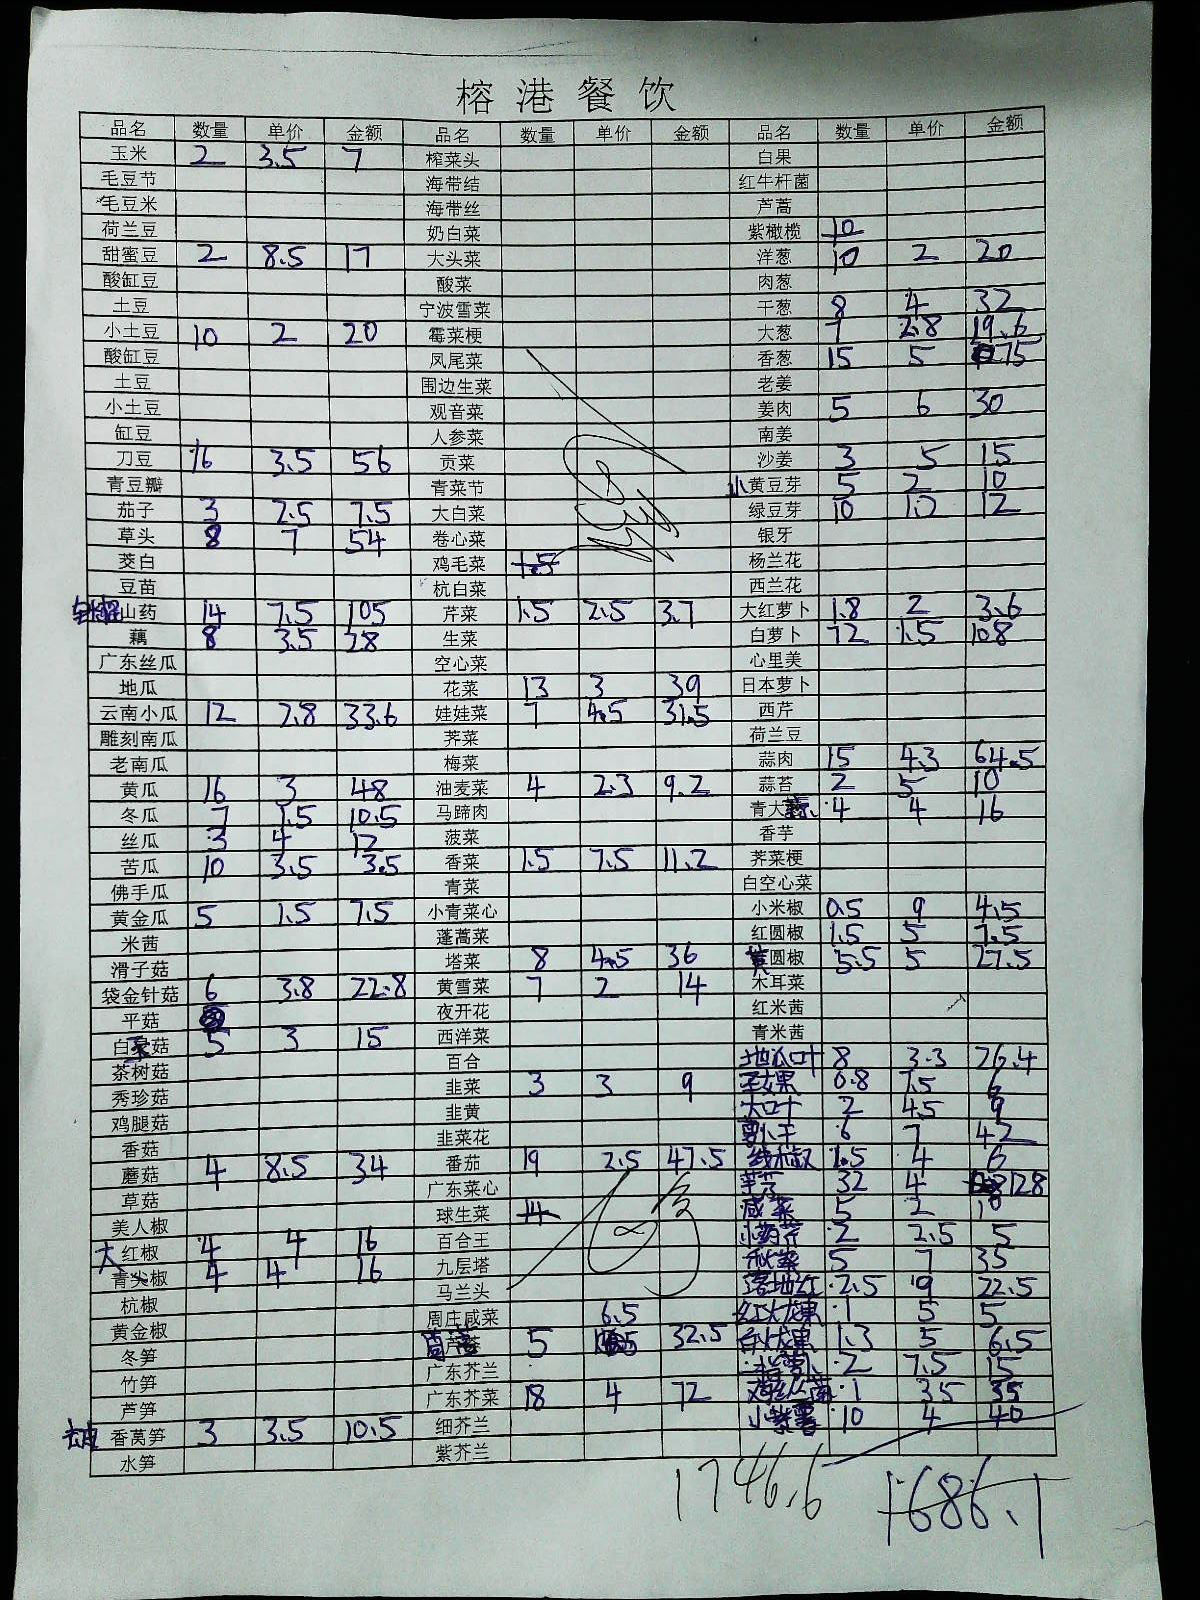 榕港餐饮
品名 数量 单价 金额 品名 数量 单价 金额 品名 数量 单价 金额
玉米 2 3.5 7 榨菜头 白果
毛豆节 海带结 红牛杆菌
毛豆米 海带丝 芦蒿
荷兰豆 奶白菜 紫橄榄 10
甜蜜豆 2 8.5 17 大头菜 洋葱 10 2 20
酸缸豆 酸菜 肉葱
土豆 宁波雪菜 干葱 8 4 32
小土豆 10 2 20 霉菜梗 大葱 7 2.8 19.6
酸缸豆 凤尾菜 香葱 15 5 75
土豆 围边生菜 老姜
小土豆 观音菜 姜肉 5 6 30
缸豆 人参菜 南姜
刀豆 16 3.5 56 贡菜 沙姜 3 5 15
青豆瓣 青菜节 小黄豆芽 5 2 10
茄子 3 2.5 7.5 大白菜 绿豆芽 10 1.2 12
草头 8 7 54 卷心菜 银牙
茭白 鸡毛菜 1.5 杨兰花
豆苗 杭白菜 西兰花
山药 14 7.5 105 芹菜 1.5 2.5 3.7 大红萝卜 1.8 2 3.6
藕 8 3.5 28 生菜 白萝卜 72 1.5 108
广东丝瓜 空心菜 心里美
地瓜 花菜 13 3 39 日本萝卜
云南小瓜 12 2.8 33.6 娃娃菜 7 4.5 31.5 西芹
雕刻南瓜 荠菜 荷兰豆
老南瓜 梅菜 蒜肉 15 4.3 64.5
黄瓜 16 3 48 油麦菜 4 2.3 9.2 蒜苔 2 5 10
冬瓜 7 1.5 10.5 马蹄肉 青大蒜 4 4 16
丝瓜 3 4 12 菠菜 香芋
苦瓜 10 3.5 3.5 香菜 1.5 7.5 11.2 荠菜梗
佛手瓜 青菜 白空心菜
黄金瓜 5 1.5 7.5 小青菜心 小米椒 0.5 9 4.5
米茜 蓬蒿菜 红圆椒 1.5 5 7.5
滑子菇 塔菜 8 4.5 36 黄圆椒 5.5 5 27.5
袋金针菇 6 3.8 22.8 黄雪菜 7 2 14 木耳菜
平菇 夜开花 红米茜
白灵菇 5 3 15 西洋菜 青米茜
茶树菇 百合 地瓜叶 8 3.3 26.4
秀珍菇 韭菜 3 3 9 0.8 7.5 6
鸡腿菇 韭黄 大叶 2 4.5 9
香菇 韭菜花 萝卜干 6 7 42
蘑菇 4 8.5 34 番茄 19 2.5 47.5 线椒 1.5 4 6
草菇 广东菜心 芋艿 32 4 128
美人椒 球生菜 14 咸菜 5 2 10
大红椒 4 4 16 百合王 2 2.5 5
青尖椒 4 4 16 九层塔 秋葵 5 7 35
杭椒 马兰头 落地红 2.5 9 22.5
黄金椒 周庄咸菜 6.5 红火龙果 1 5 5
冬笋 5 32.5 白火龙果 1.3 5 6.5
竹笋 广东芥兰 2 7.5 15
芦笋 广东芥菜 18 4 72 鸡丝菌 1 35 35
去皮香莴笋 3 3.5 10.5 细芥兰 小紫薯 10 4 40
水笋 紫芥兰
1746.6 1686.1